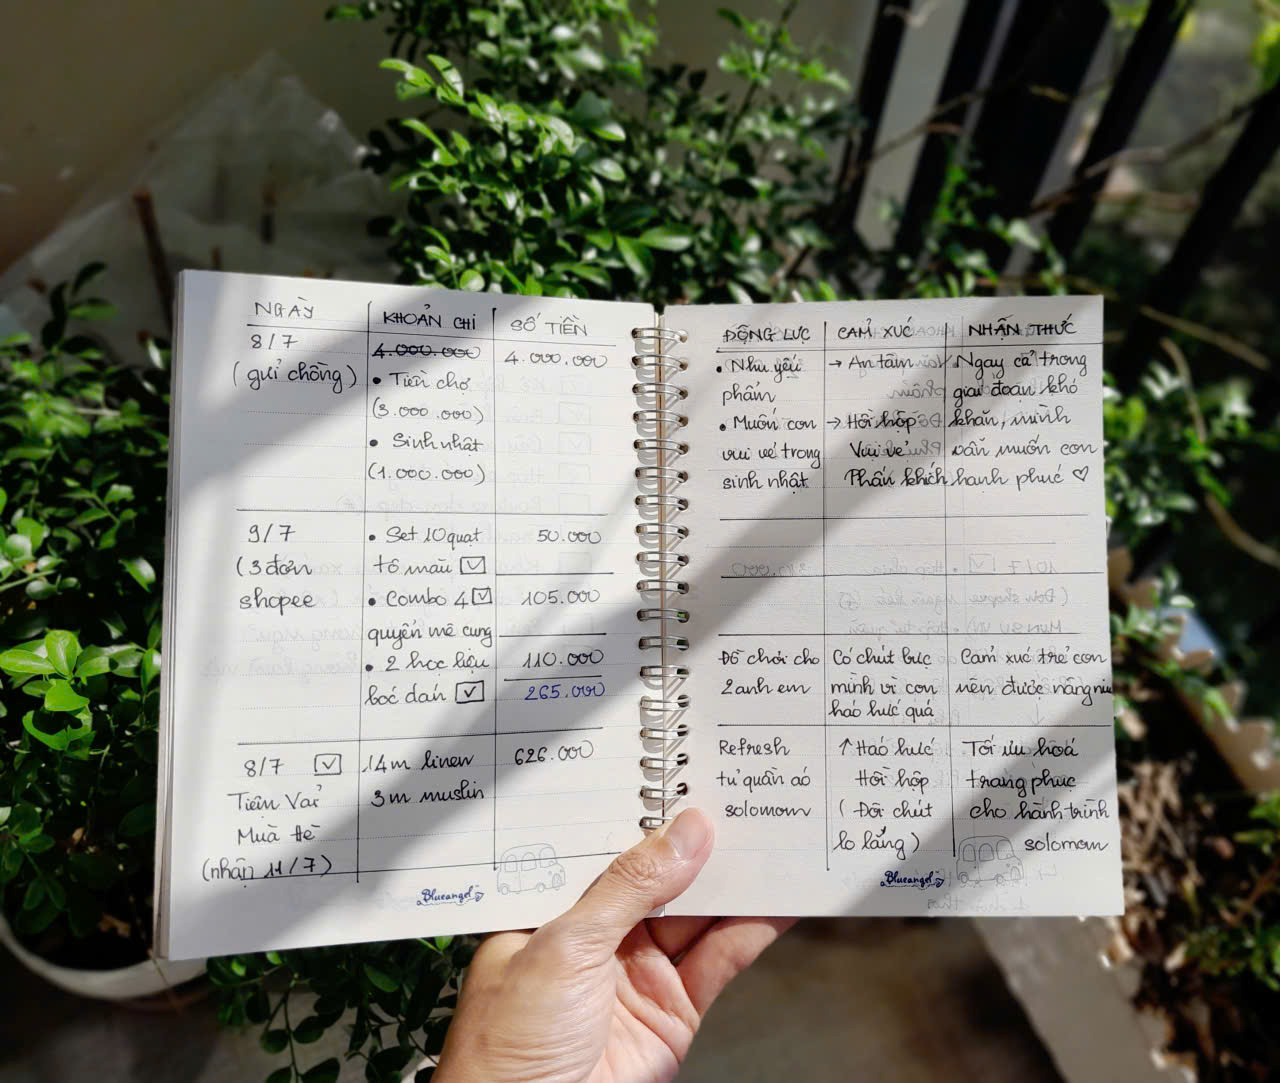 NGÀY
KHOẢN CHI
SỐ TIỀN
8/7
(gửi chồng)
4.000.000
• Tiền chợ
(3.000.000)
• Sinh nhật
(1.000.000)
4.000.000
9/7
(3 đơn
shopee
• Set 10 quạt
tô màu
50.000
• Combo 4
quyển mê cung
105.000
• 2 học liệu
boc dan
110.000
265.000
8/7
Tiệm Vải
Mùa Hè
(nhận 11/7)
14m linen
3m muslin
626.000
Blueangel
ĐỘNG LỰC
CẢM XÚC
NHẬN THỨC
• Nhu yếu
phẩm
• Muốn con
vui vẻ trong
sinh nhật
→ An tâm
→ Hồi hộp
Vui vẻ
Phấn khích
• Ngay cả trong
giai đoạn khó
khăn, mình
vẫn muốn con
hạnh phúc ♡
Đồ chơi cho
2 anh em
Có chút bực
mình vì con
háo hức quá
Cảm xúc trẻ con
nên được nâng niu
Refresh
tủ quần áo
solomom
↑ Háo hức
Hồi hộp
( Đôi chút
lo lắng )
Tối ưu hoá
trang phục
cho hành trình
solomom
Blueangel